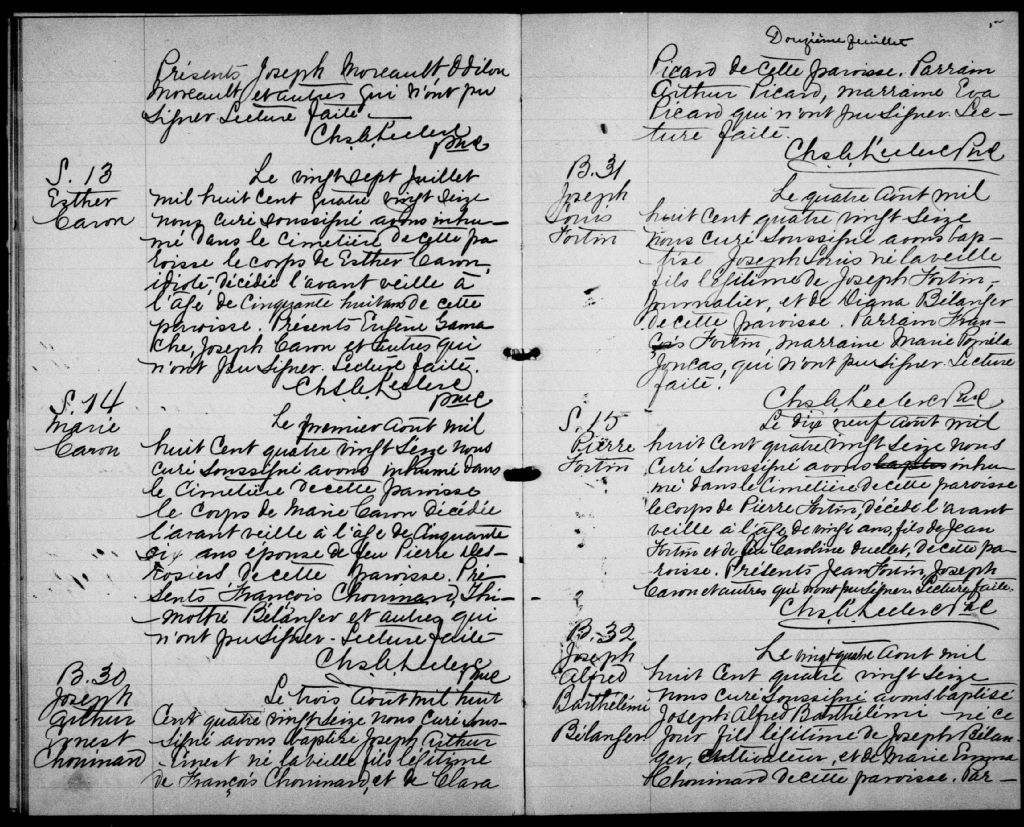 Présents, Joseph Moreault, Odilon
Moreault et autres qui n'ont pu
signer Lecture faite
Chs. A. Leclerc
Ptre
S. 13
Esther
Caron
Le vingt sept Juillet
mil huit cent quatre vingt seize
nous curé soussigné avons inhu-
mé dans le cimetière de cette pa
roisse le corps de Esther Caron,
idiote, décédée l'avant veille à
l'âge de Cinquante huit ans de cette
paroisse. Présents Eugène Gama
che, Joseph Caron et autres qui
n'ont pu signer. Lecture faite.
Chs. A. Leclerc
Ptre
S. 14
Marie
Caron
Le premier Août mil
huit cent quatre vingt seize nous
curé soussigné avons inhumé dans
le cimetière de cette paroisse
le corps de Marie Caron décédée
l'avant veille à l'âge de Cinquante
dix ans épouse de feu Pierre Des-
rosiers, de cette paroisse. Pré-
sents François Chouinard, Thi-
mothé Bélanger et autres qui
n'ont pu signer. Lecture faite
Chs. A. Leclerc
Ptre
B. 30
Joseph
Arthur
Ernest
Chouinard
Le trois Août mil huit
cent quatre vingt seize nous curé sous-
signé avons baptisé Joseph Arthur
Ernest né la veille fils légitime
de François Chouinard, et de Clara
Douzième feuillet
Picard de cette paroisse. Parrain
Arthur Picard, marraine Eva
Picard qui n'ont pu signer. Lec-
ture faite.
Chs. A. Leclerc Ptre
B. 31
Joseph
Louis
Fortin
Le quatre Août mil
huit cent quatre vingt seize
nous curé soussigné avons bap-
tisé Joseph Louis né la veille
fils légitime de Joseph Fortin,
journalier, et de Diana Bélanger
de cette paroisse. Parrain Fran-
çois Fortin, Marraine Marie
Joncas, qui n'ont pu signer. Lecture
faite.
Chs. A. Leclerc Ptre
S. 15
Pierre
Fortin
Le dix neuf Août mil
huit cent quatre vingt seize nous
curé soussigné avons baptisé inhu-
mé dans le cimetière de cette paroisse
le corps de Pierre Fortin, décédé l'avant
veille à l'âge de vingt ans, fils de Jean
Fortin et de feu Caroline Ouellet, de cette pa-
roisse. Présents Jean Fortin, Joseph
Caron et autres qui n'ont pu signer. Lecture faite.
Chs. A. Leclerc Ptre
B. 32
Joseph
Alfred
Barthélémi
Bélanger
Le vingt quatre Août mil
huit cent quatre vingt seize
nous curé soussigné avons baptisé
Joseph Alfred Barthélémi né ce
jour fils légitime de Joseph Bélan-
ger, cultivateur, et de Marie Emma
Chouinard de cette paroisse. Par-